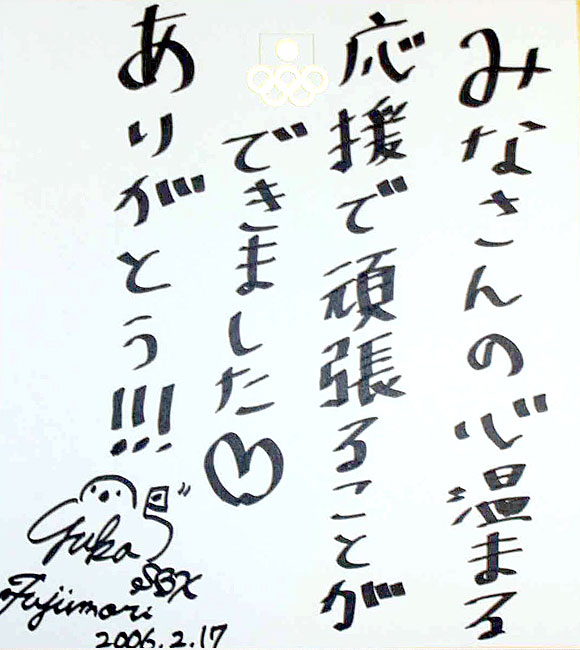 みなさんの心温まる
応援で頑張ることが
できました♡
ありがとう!!!
Yuko
SBX
Fujimori
2006.2.17